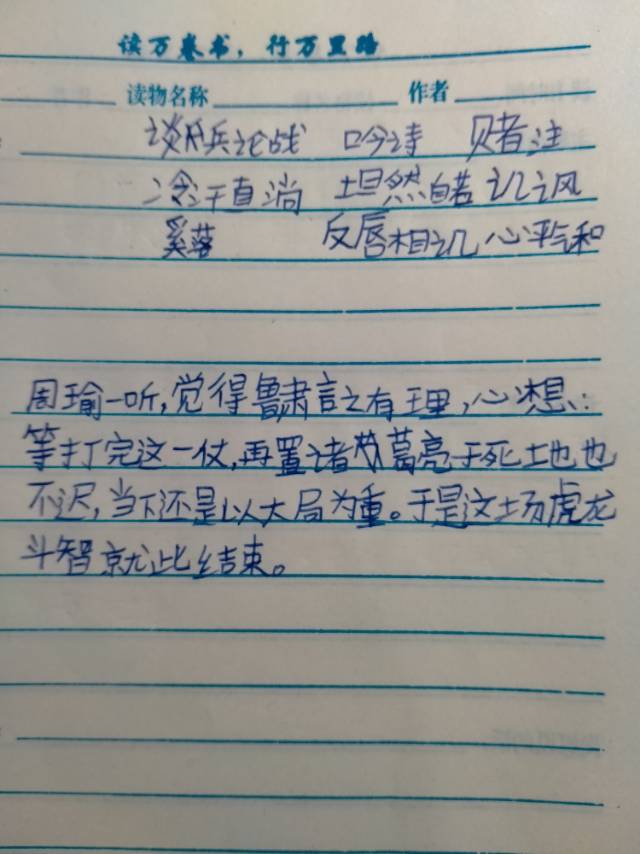 读万卷书，行万里路
读物名称 作者
谈兵论战 吟诗 赌注
冷汗直淌 坦然自若 讥讽
奚落 反唇相讥 心平气和
周瑜一听，觉得鲁肃言之有理，心想：
等打完这一仗，再置诸葛亮于死地也
不迟，当下还是以大局为重。于是这场虎龙
斗智就此结束。